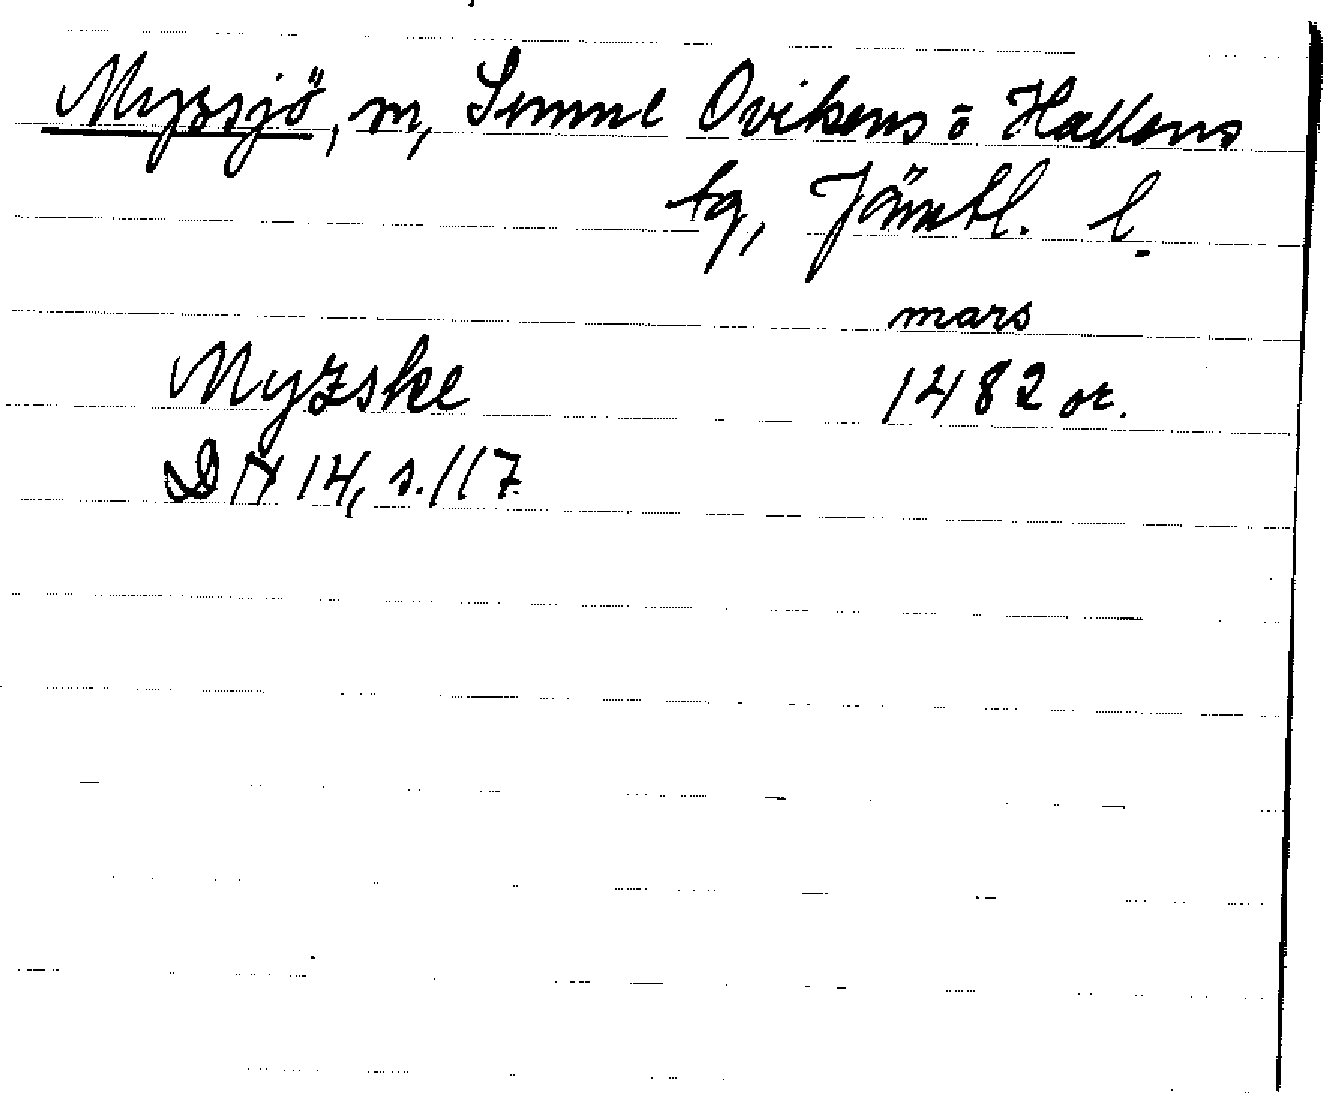 Myzsjö, m, Sunne Ovikens o Hallens
tg, Jämtl. l.
mars
Myzske 1482 or.
DN 14, s. 117